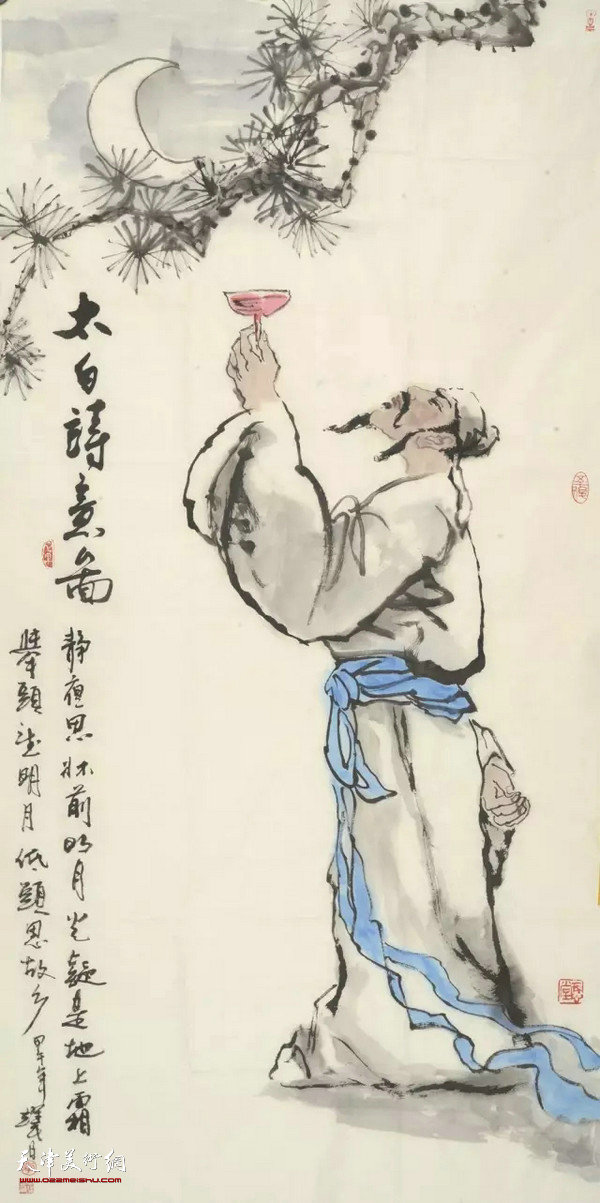 太白詩意畫
静夜思 牀前明月光 疑是地上霜
舉頭望明月 低頭思故乡 甲午年
天津美术网
www.022meishu.com